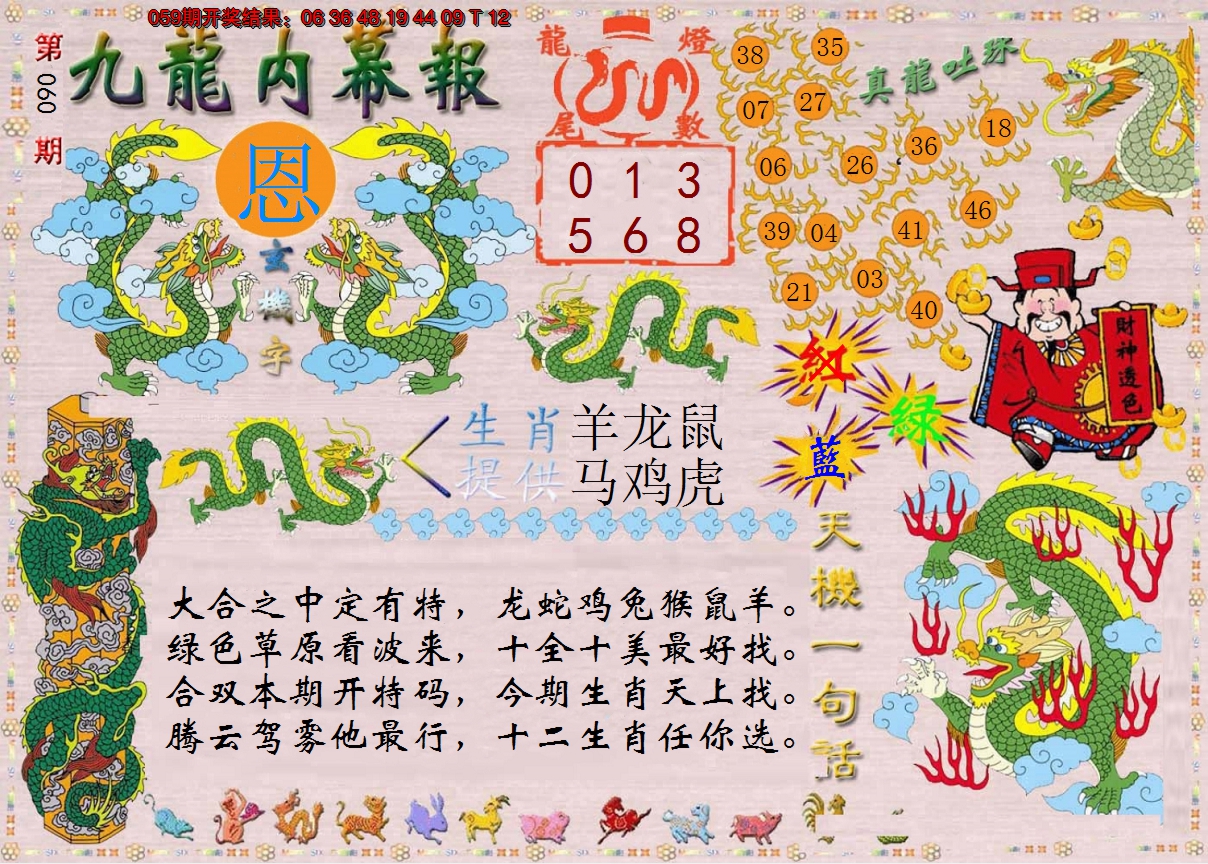 059期开奖结果：06 36 48 19 44 09 T 12
第
090
期
九龍内幕報
恩
玄
機
字
龍 燈
尾 數
0 1 3
5 6 8
真龍吐珠
38 35
07 27
36 18
06 26
46
39 04 41
03
21
40
財神透色
紅
绿
藍
生肖 羊龙鼠
提供 马鸡虎
大合之中定有特，龙蛇鸡兔猴鼠羊。
绿色草原看波来，十全十美最好找。
合双本期开特码，今期生肖天上找。
腾云驾雾他最行，十二生肖任你选。
天機一句話